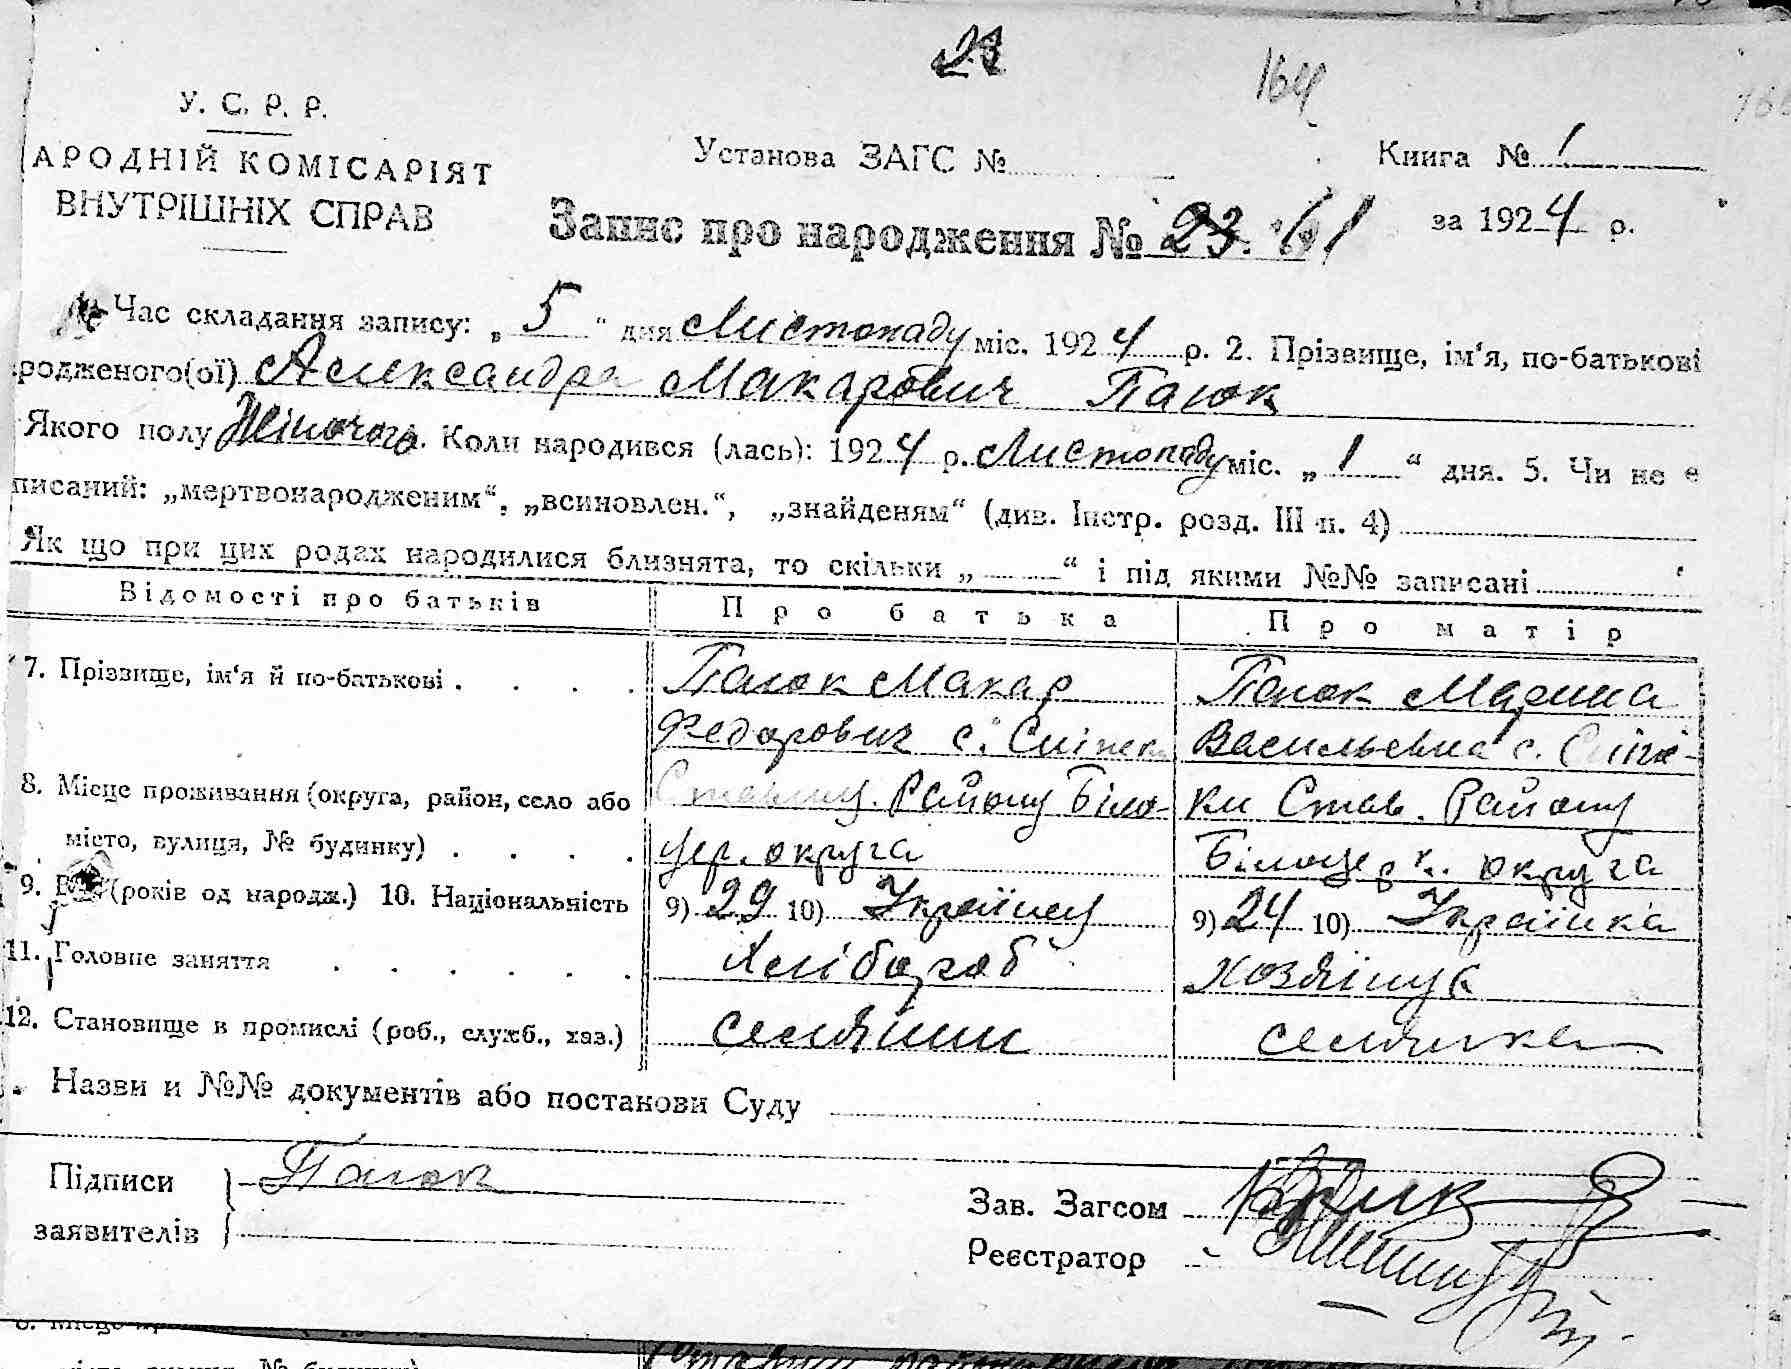 23
164
У. С. Р. Р.
АРОДНІЙ КОМІСАРІЯТ
ВНУТРІШНІХ СПРАВ
Установа ЗАГС №
Книга № 1
за 1924 р.
Запис про народження № 23. 61
Час складання запису: „ 5 “ дня Листопаду міс. 1924 р. 2. Прізвище, ім‘я, по-батькові
родженого(ої) Александра Макарович Паюк
Якого полу Жіночого. Коли народився (лась): 1924 р. Листопаду міс. „ 1 “ дня. 5. Чи не є
писаний: „мертвонародженим“, „всиновлен.“, „знайденям“ (див. Інстр. розд. III п. 4)
Як що при цих родах народилися близнята, то скільки „ “ і під якими №№ записані
Відомості про батьків Про батька Про матір
7. Прізвище, ім‘я й по-батькові . . . . Паюк Макар Паюк Марина
Федорович с. Васильевна с.
8. Місце проживання (округа, район, село або Району Біло- ки Став. Району
місто, вулиця, № будинку) . . . . цер. округа Білоцерк. округа
9. (років од народж.) 10. Національність 9) 29 10) Українец 9) 24 10) Українка
11. Головне заняття . . . . . . Хлібороб хозяйнує
12. Становище в промислі (роб., служб., хаз.) селянин селянка
Назви и №№ документів або постанови Суду
Підписи Паюк
заявителів
Зав. Загсом
Реєстратор